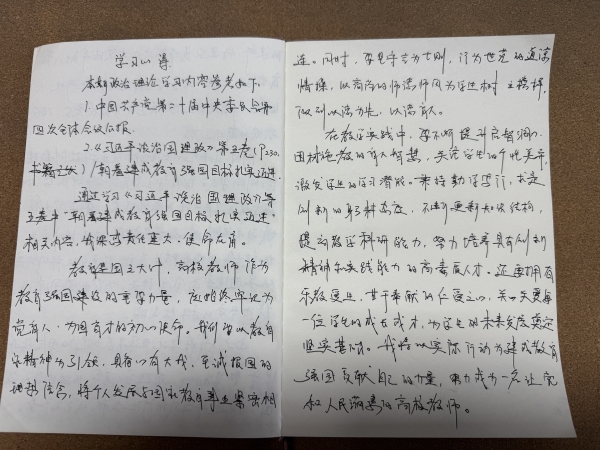 学习心得
本期政治理论学习内容参考如下:
1.中国共产党第二十届中央委员会第
四次全体会议公报.
2.《习近平谈治国理政》第五卷(P230,
书籍正版)/朝着建成教育强国目标扎实迈进.
通过学习《习近平谈治国理政》第
五卷中"朝着建成教育强国目标扎实迈进"
相关内容,我深感责任重大、使命在肩。
教育是国之大计,高校教师作为
教育强国建设的重要力量,应始终牢记为
党育人、为国育才的初心使命。我们当以教育
家精神为引领,具备心有大我、至诚报国的
理想信念,将个人发展与国家教育事业紧密相
连。同时,要坚守言为士则,行为世范的道德
情操,以高尚的师德师风为学生树立榜样,
做到以德为先,以德育人。
在教学实践中,要不断提升启智润心、
因材施教的育人智慧,关注学生的个性差异,
激发学生的学习潜能。秉持勤学笃行、求是
创新的躬耕态度,不断更新知识结构,
提高教学科研能力,努力培养具有创新
精神和实践能力的高素质人才。还要拥有
乐教爱生、甘于奉献的仁爱之心,关心关爱每
一位学生的成长成才,为学生的未来发展奠定
坚实基础。我将以实际行动为建成教育
强国贡献自己的力量,努力成为一名让党
和人民满意的高校教师。